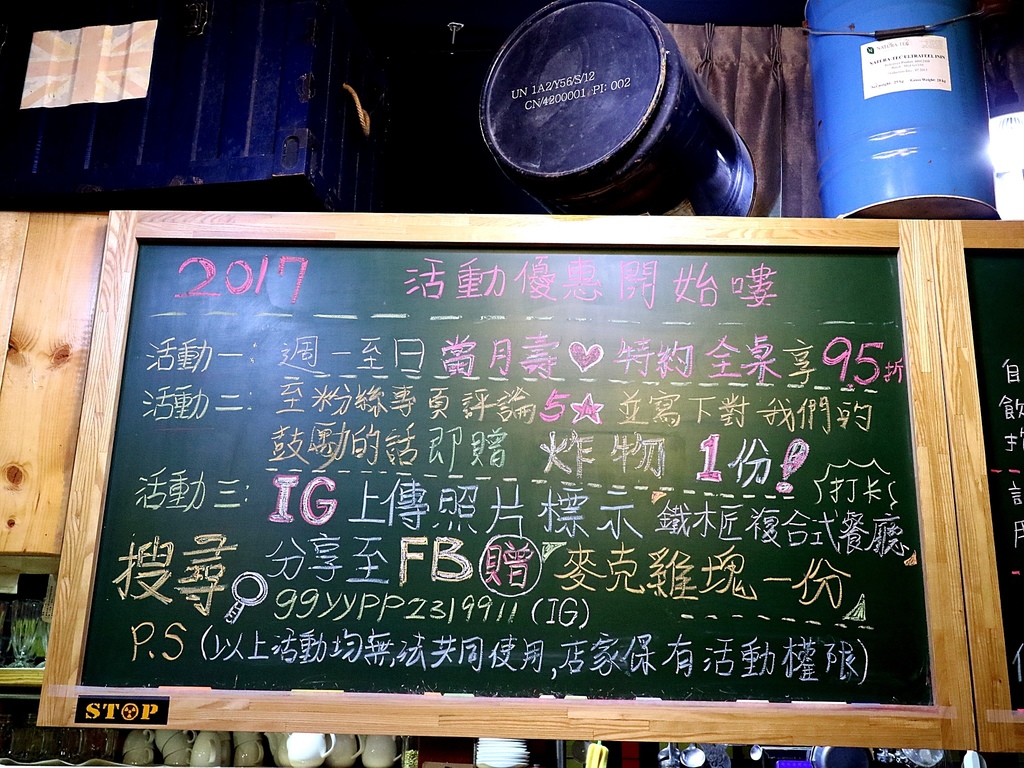 UN 1A2/Y56/S/12
CN/4200001 PI: 002
NATURA-TEC ULTRAFEEL INIS
2017 活動優惠開始嘍
活動一: 週一至日當月壽♥特約全桌享95折
活動二: 至粉絲專頁評論5☆並寫下對我們的
鼓勵的話即贈 炸物 1份!
活動三: IG上傳照片標示 鐵木匠複合式餐廳
打卡
搜尋 分享至FB贈麥克雞塊一份
ggyypp2319911 (IG)
P.S (以上活動均無法共同使用,店家保有活動權限)
STOP
自
飲